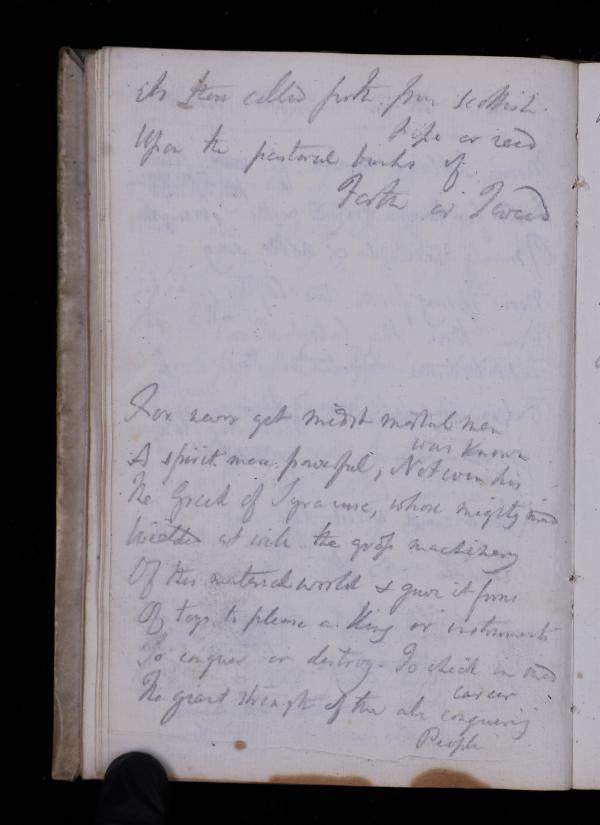 its tone called forth from Scottish
pipe or reed
Upon the pastoral banks of
Forth or Tweed
For never yet midst mortal men
was known
A spirit more powerful, Not even his
The Greek of Syracuse, whose mighty mind
Wielded at will the gross machinery
Of this material world & gave it forms
Of toys to please a King or instruments
To conquer or destroy. To check in mid
career
The giant strength of the all conquering
People